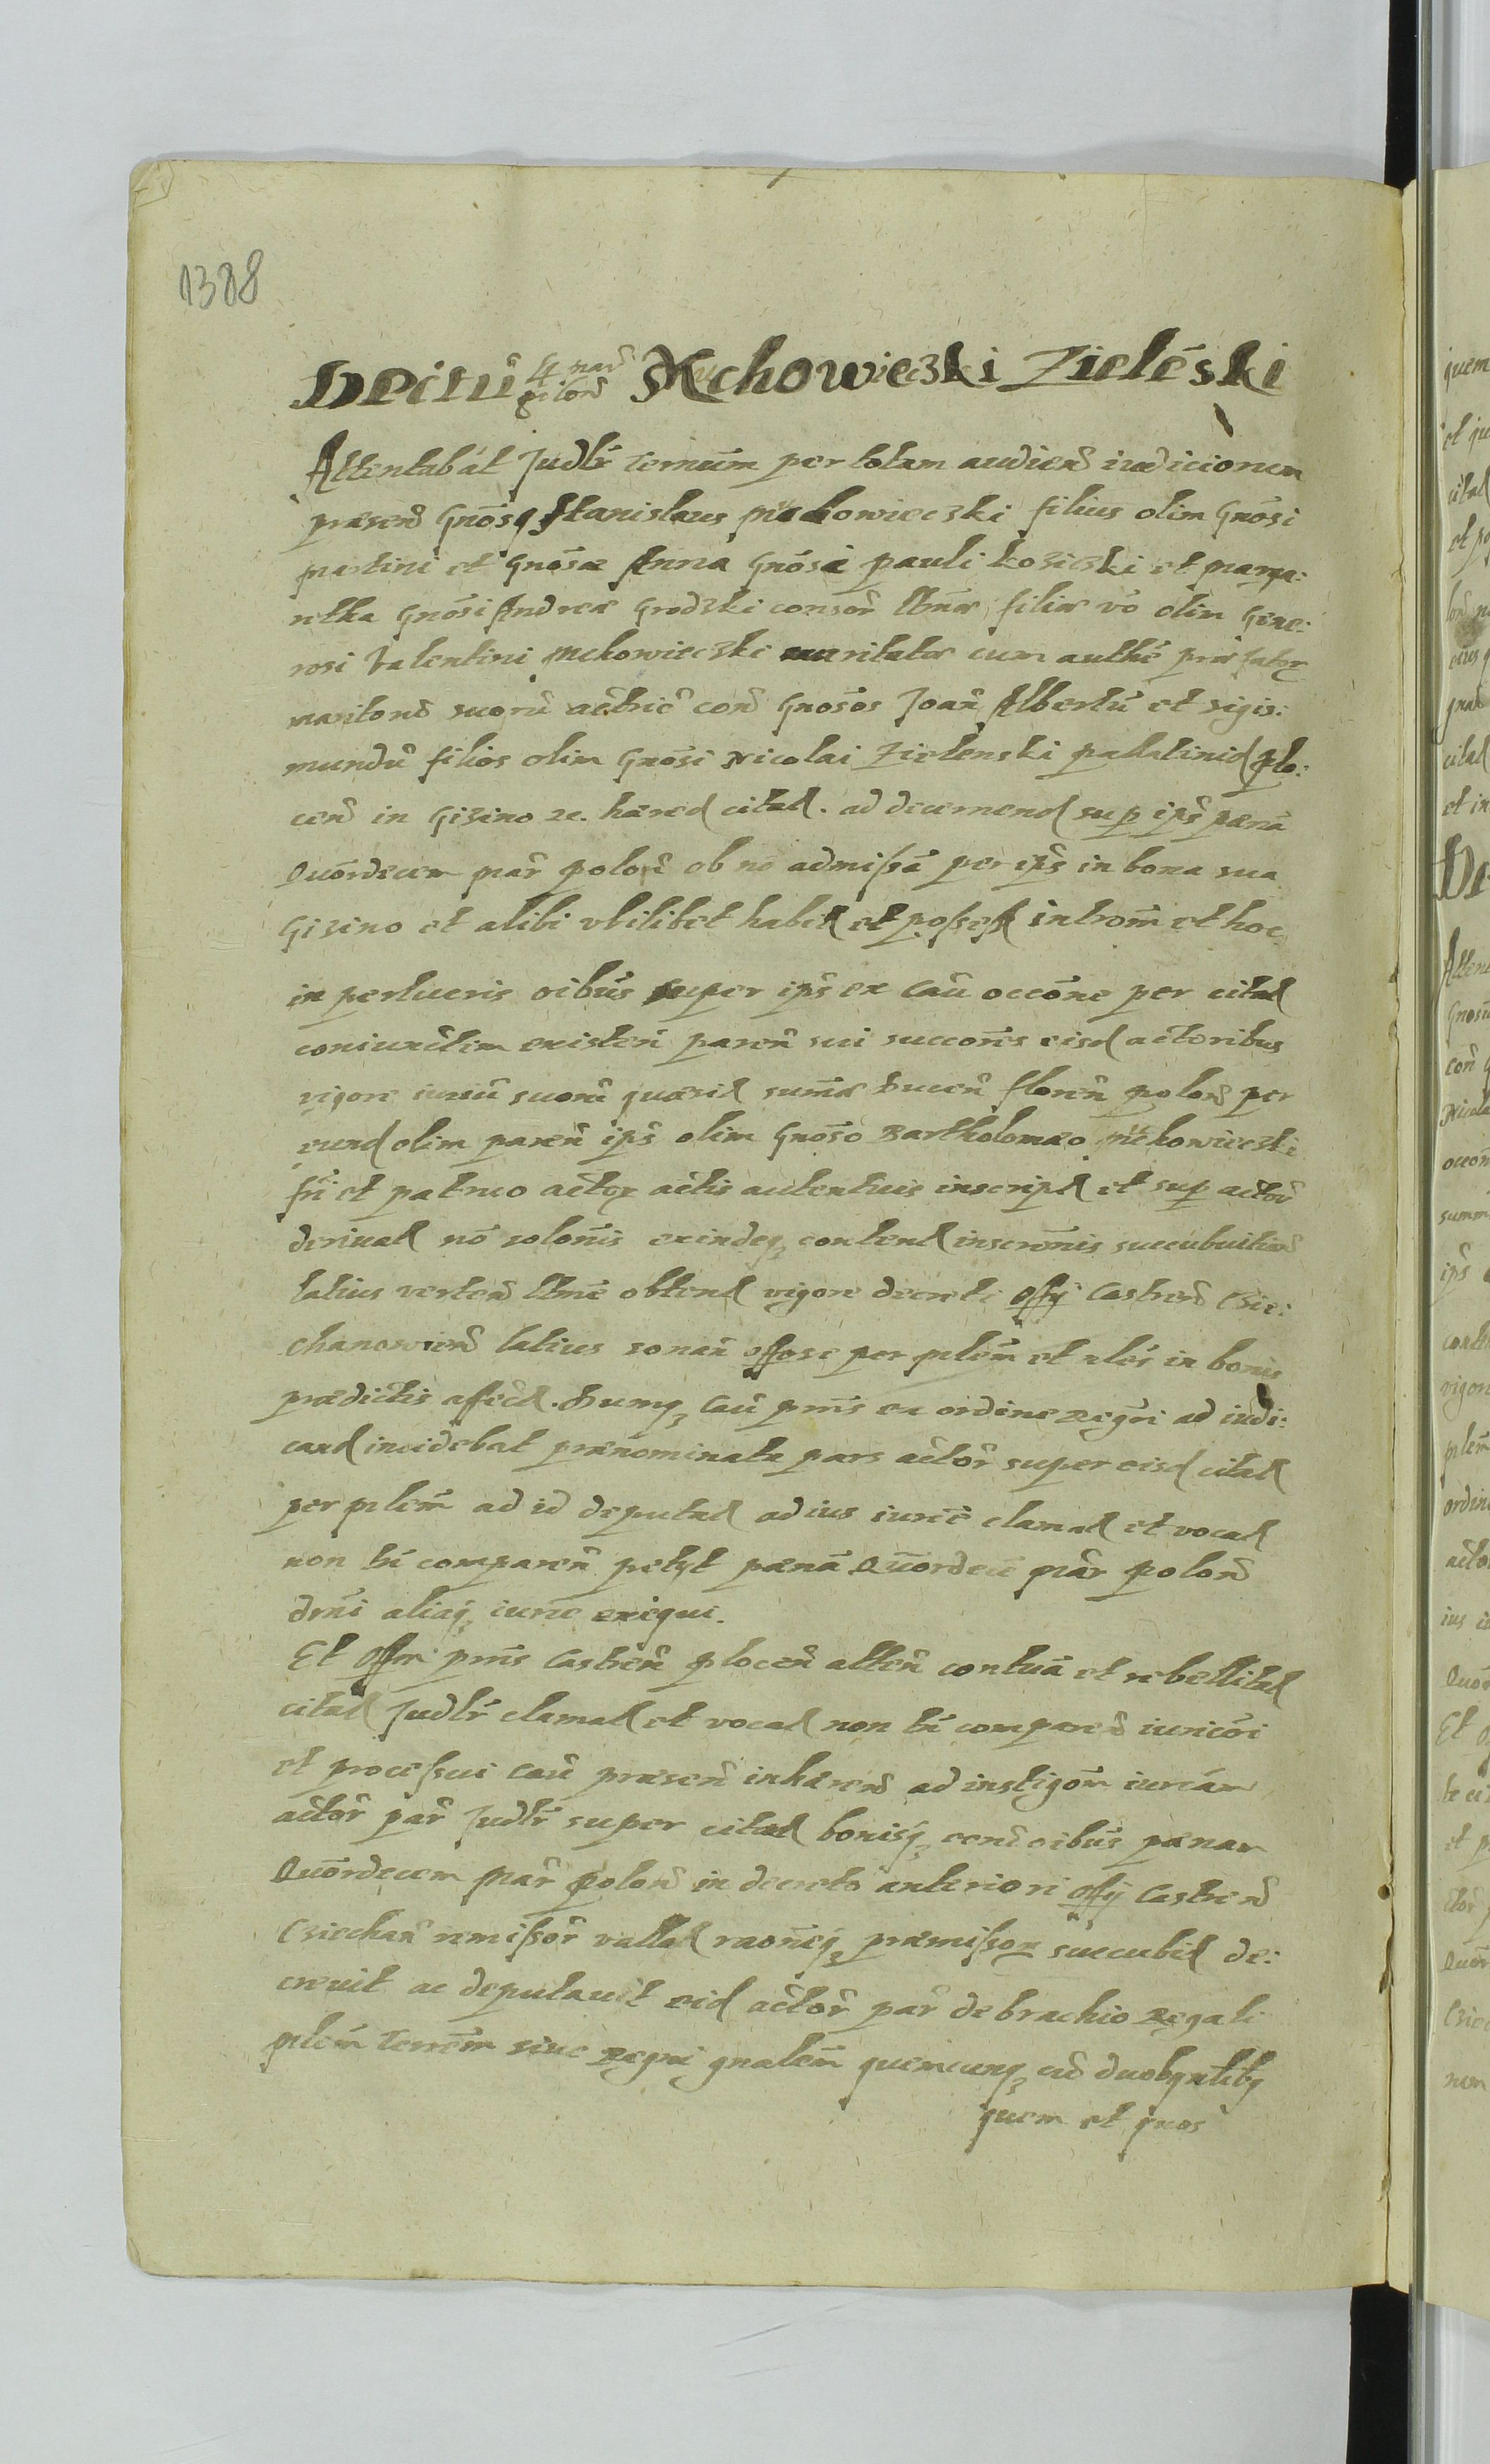 1388
Decitũ 14 mar̃ polon̄ Mchowieczki Zielẽski
Attentabát Judlr̃ Ternum̃ per totam audien̄ iudicionem
præsen̄ Gnõsq Stanislaus Mchowieczki filius olim Gnõsi
Martini et Gnõsæ Anna Gnõsi Pauli Koziczki et Marga:
retha Gnõsi Andreæ Grodzki consor̃ ltĩmæ filiæ võ olim Gene:
rosi Valentini Mchowieczki maritatæ cum authẽ præfator
maritorũ suorũ actric̃ con̄ Gnõsos Joan̄ Albertũ et Sigis:
mundũ filios olim Gnõsi Nicolai Zielenski pallatinid Plo:
cen̄ in Gizino &c. hæred citad. ad decernend sup ips̃ pænã
Quõrdecem mar̃ polon̄ ob nõ admissã per ips̃ in bona sua
Gizino et alibi vbilibet habit et possess introm̃ et hoc
in perlucris oĩbus super ips̃ ex Cau̇ occõne per citad
coniunctim existen̄ paren̄ sui succões eisd actoribus
vigore iuriũ suorũ quæsid sum̃æ Ducen̄ floren̄ polon̄ per
eund olim paren̄ ips̃ olim Gnõso Bartholomæo Mchowieczki
frĩ et patruo actor actis autenticis inscript et sup actor̃
deriuad nõ solõnis exindeq₃ content inscrõnis succubuition̄
latius verten̄ ltĩmẽ obtend vigore decreti Offĩj Castren̄ Czie:
chanowien̄ latius sonan̄ Offose per mlem̃ et nlẽs in bonis
prædictis affect. Dumq₃ Cau̇ pñs ex ordine Regr̃i ad iudi:
cand incidebat prænominata pars actor̃ super eisd citad
per mlem̃ ad id deputad ad ius iurĩe clamad et vocad
non tñ comparen̄ petijt pænã Quõrdecẽ mar̃ polon̄
drñi aliaq₃ iurĩe exequi.
Et Offm pñs Castren̄ Plocen̄ atten̄ contuã et rebellitad
citad Judlr̃ clamad et vocad non tñ comparen̄ iuricõi
et processui Cau̇ præsen̄ inhæren̄ ad instigõm iurcãm
actor̃ par̃ Judlr̃ super citad bonisq₃ eorũ oĩbus pænam
Quõrdecem mar̃ polon̄ in decreto anteriori Offij Castren̄
Cziechan̄ remissor̃ vallad raõneq₃ præmissor succubid de:
creuit ac deputauit eid actor̃ par̃ de brachio Regali
mlem̃ Terrẽm siue Regni gnalem̃ quemcunq₃ cũ duobq nlibq
quem et quos